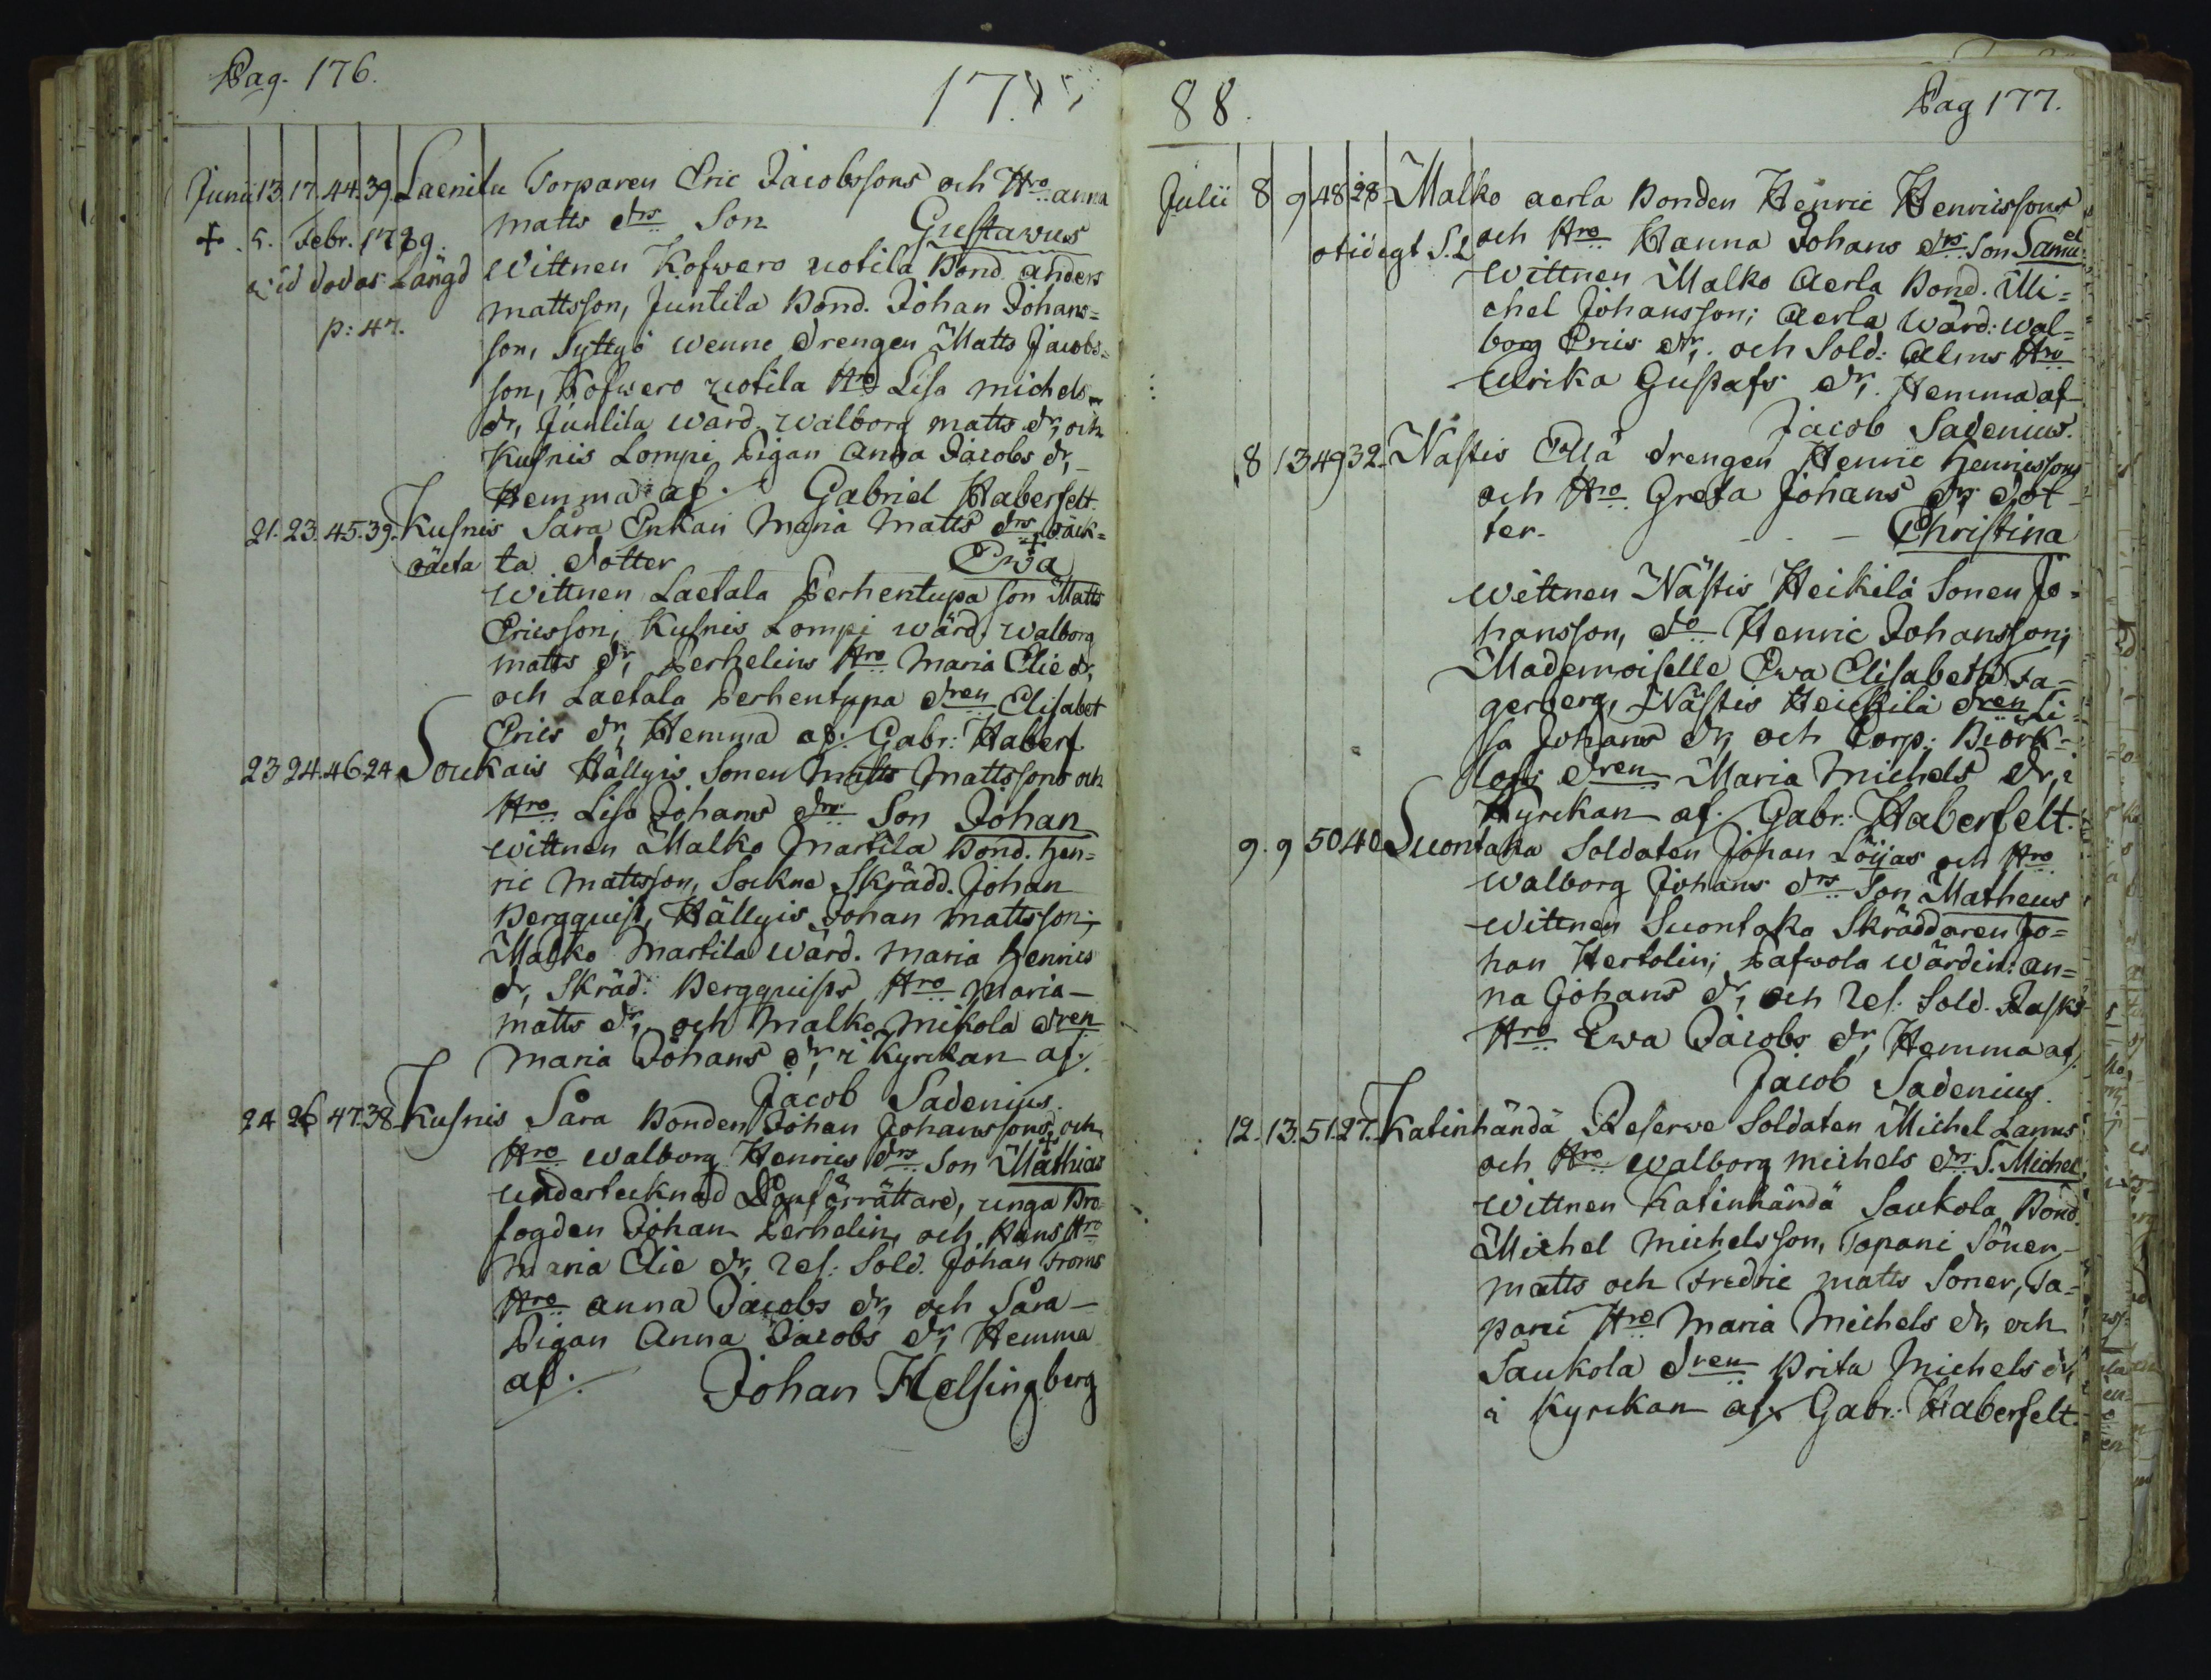 Pag. 176.
17
Junii 13. 17. 44. 39. Laenilu Torparen Eric Jacobssons och Hro anna
matts drs Son Gustavus
+ . 5. Febr. 1789.
Wittnen Kofwero uotila Bond. anders
vid dödas Längd
mattsson, Juntila Bond. Johan Johans=
p: 47.
son, Syttyö wenne drengen Matts Jacobs=
son, Kofwero uotila Hro Lisa michels
dr, Juntila wärd. walborg matts dr, och
Kusnis Lompi Pigan Anna Jacobs dr,
Hemma af. Gabriel Haberfelt.
21. 23. 45. 39. Kusnis Såra Enkan Maria Matts drs oäck=
oäckta ta dotter Ewa
Wittnen Laetala Perhentupa son Matts
Ericsson, Kusnis Lompi wärd. Walborg
matts dr, Perhelins Hro Maria Elie dr,
och Laetala Perhentupa dren Elisabet
Erics dr, Hemma af. Gabr: Haberf.
23 24. 46. 24. Soukais Hällyis Sonen Matts Mattssons och
Hro Lisa Johans drs Son Johan
Wittnen Malko Martila Bond. Hen=
ric Mattsson, Sockne Skrädd. Johan
Bergquist, Hällyis Johan Mattsson;
Malko Martila wärd. Maria Henrics
dr, Skräd: Bergquists Hro Maria
matts dr, och Malko Mikola dren
Maria Johans dr, i Kyrckan af.
Jacob Sadenius.
24 26 47. 38. Kusnis Såra Bonden Johan Johanssons och
Hro Walborg Henrics drs Son Mathias
Undertecknad Döpförrättare, unga Bro
fogden Johan Perhelin, och Hans Hro
Maria Elie dr, Ref: Sold. Johan Froms
Hro Anna Jacobs dr, och Såra
Pigan Anna Jacobs dr, Hemma
af. Johan Helsingberg
88.
Pag 177.
Julii 8 9 48 28. Malko aerla Bonden Henric Henricssons
otidigt S. L. och Hro Hanna Johans drs Son Samuel
Wittnen Malko Aerla Bond. Mi=
chel Johansson; Aerla Wärd: wal=
borg Erics dr, och Sold: Alms Hro
Ulrika Gustafs dr. Hemma af
Jacob Sadenius.
8 13 49 32. Nästis Ellä drengen Henric Henricssons
och Hro Greta Johans drs dot
ter. - - - Christina
Wittnen Nästis Heikilä Sonen Jo=
hansson, do Henric Johansson;
Mademoiselle Ewa Elisabeth Fa=
gerberg, Nästis Heickilä dren Li=
sa Johans dr, och Corp: Biörk=
lofs dren Maria Michels dr, i
Kyrckan af. Gabr: Haberfelt.
9. 9 50 40 Suontaka Soldaten Johan Löijas och Hro
Walborg Johans drs Son Matheus
Wittnen Suontaka Skräddaren Jo=
han Hertolin; Pafwola wärdin: An=
na Johans dr, och Ref. Sold. Rasks
Hro Ewa Jacobs dr, Hemma af.
Jacob Sadenius.
12. 13. 51. 27. Katinhändä Reserwe Soldaten Michel Lanns
och Hro Walborg michels drs S. Michel
Wittnen Katinhändä Saukola Bond.
Michel Michelsson, Tapani Söner
matts och Fredric matts Soner, Ta=
pani Hro Maria Michels dr, och
Saukola dren Brita Michels dr,
i Kyrckan af. Gabr: Haberfelt.